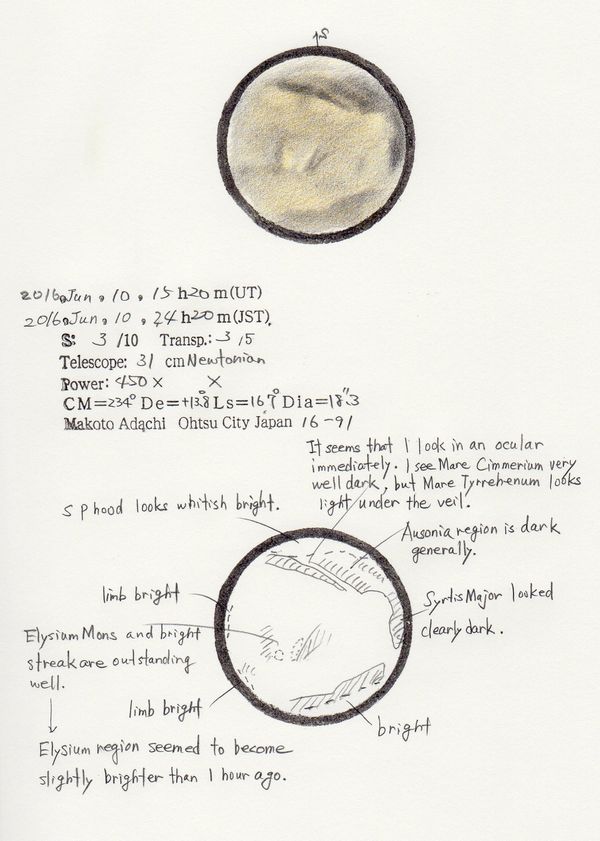 S
2016. Jun, 10, 15 h 20 m (UT)
2016. Jun, 10, 24 h 20 m (JST).
S: 3 /10 Transp.: 3 /5
Telescope: 31 cm Newtonian
Power: 450 × ×
CM=234° De=+13.8° Ls=167° Dia=18".3
Makoto Adachi Ohtsu City Japan 16-91
It seems that I look in an ocular
immediately. I see Mare Cimmerium very
well dark, but Mare Tyrrehenum looks
light under the veil.
S P hood looks whitish bright.
Ausonia region is dark
generally.
limb bright
Syrtis Major looked
clearly dark.
Elysium Mons and bright
streak are outstanding
well.
limb bright
bright
Elysium region seemed to become
slightly brighter than 1 hour ago.